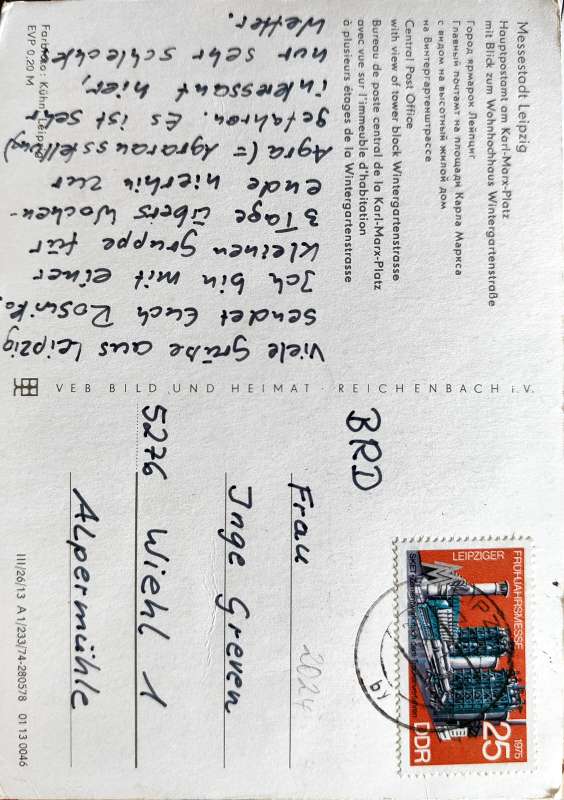 Messestadt Leipzig
Hauptpostamt am Karl-Marx-Platz
mit Blick zum Wohnhochhaus Wintergartenstraße
Город ярмарок Лейпциг
Главный почтамт на площади Карла Маркса
с видом на высотный жилой дом
на Винтергартенштрассе
Central Post Office
with view of tower block Wintergartenstrasse
Bureau de poste central de la Karl-Marx-Platz
avec vue sur l'immeuble d'habitation
à plusieurs étages de la Wintergartenstrasse
Viele Grüße aus Leipzig
sendet Euch Roswita.
Ich bin mit einer
kleinen Gruppe für
3 Tage übers Wochen-
ende hierhin zur
Agra (= Agrarausstellung)
gefahren. Es ist sehr
interessant hier,
nur sehr schlecht
Wetter.
Farbfoto: Kühn, Leipzig
EVP 0,20 M
VEB BILD UND HEIMAT · REICHENBACH i. V.
LEIPZIGER FRÜHJAHRSMESSE
1975
25
DDR
BRD
Frau
2024
Inge Greven
5276 Wiehl 1
Alpermühle
III/26/13 A 1/233/74-280578 01 13 0046